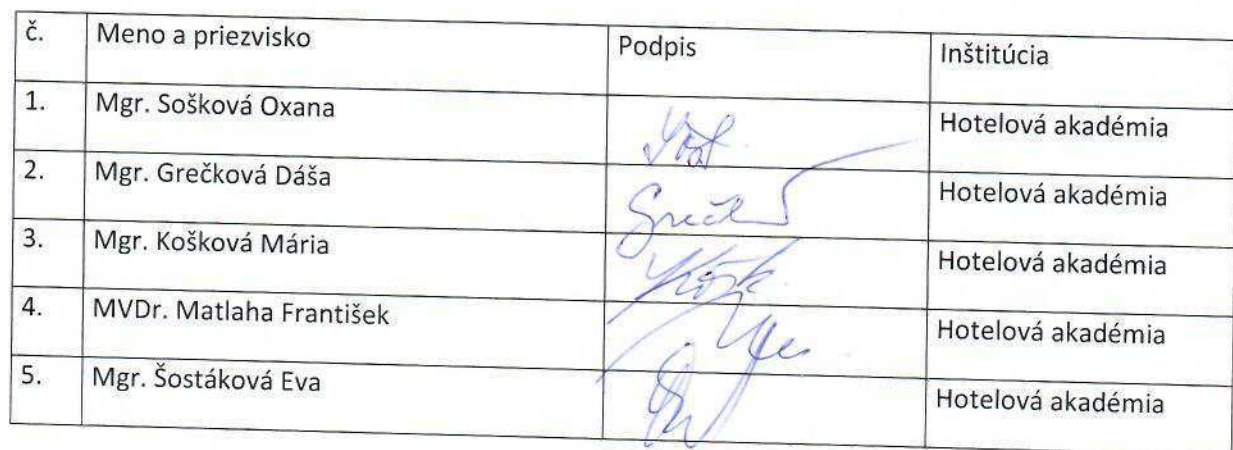 č. Meno a priezvisko Podpis Inštitúcia
1. Mgr. Sošková Oxana Hotelová akadémia
2. Mgr. Grečková Dáša Hotelová akadémia
3. Mgr. Košková Mária Hotelová akadémia
4. MVDr. Matlaha František Hotelová akadémia
5. Mgr. Šostáková Eva Hotelová akadémia